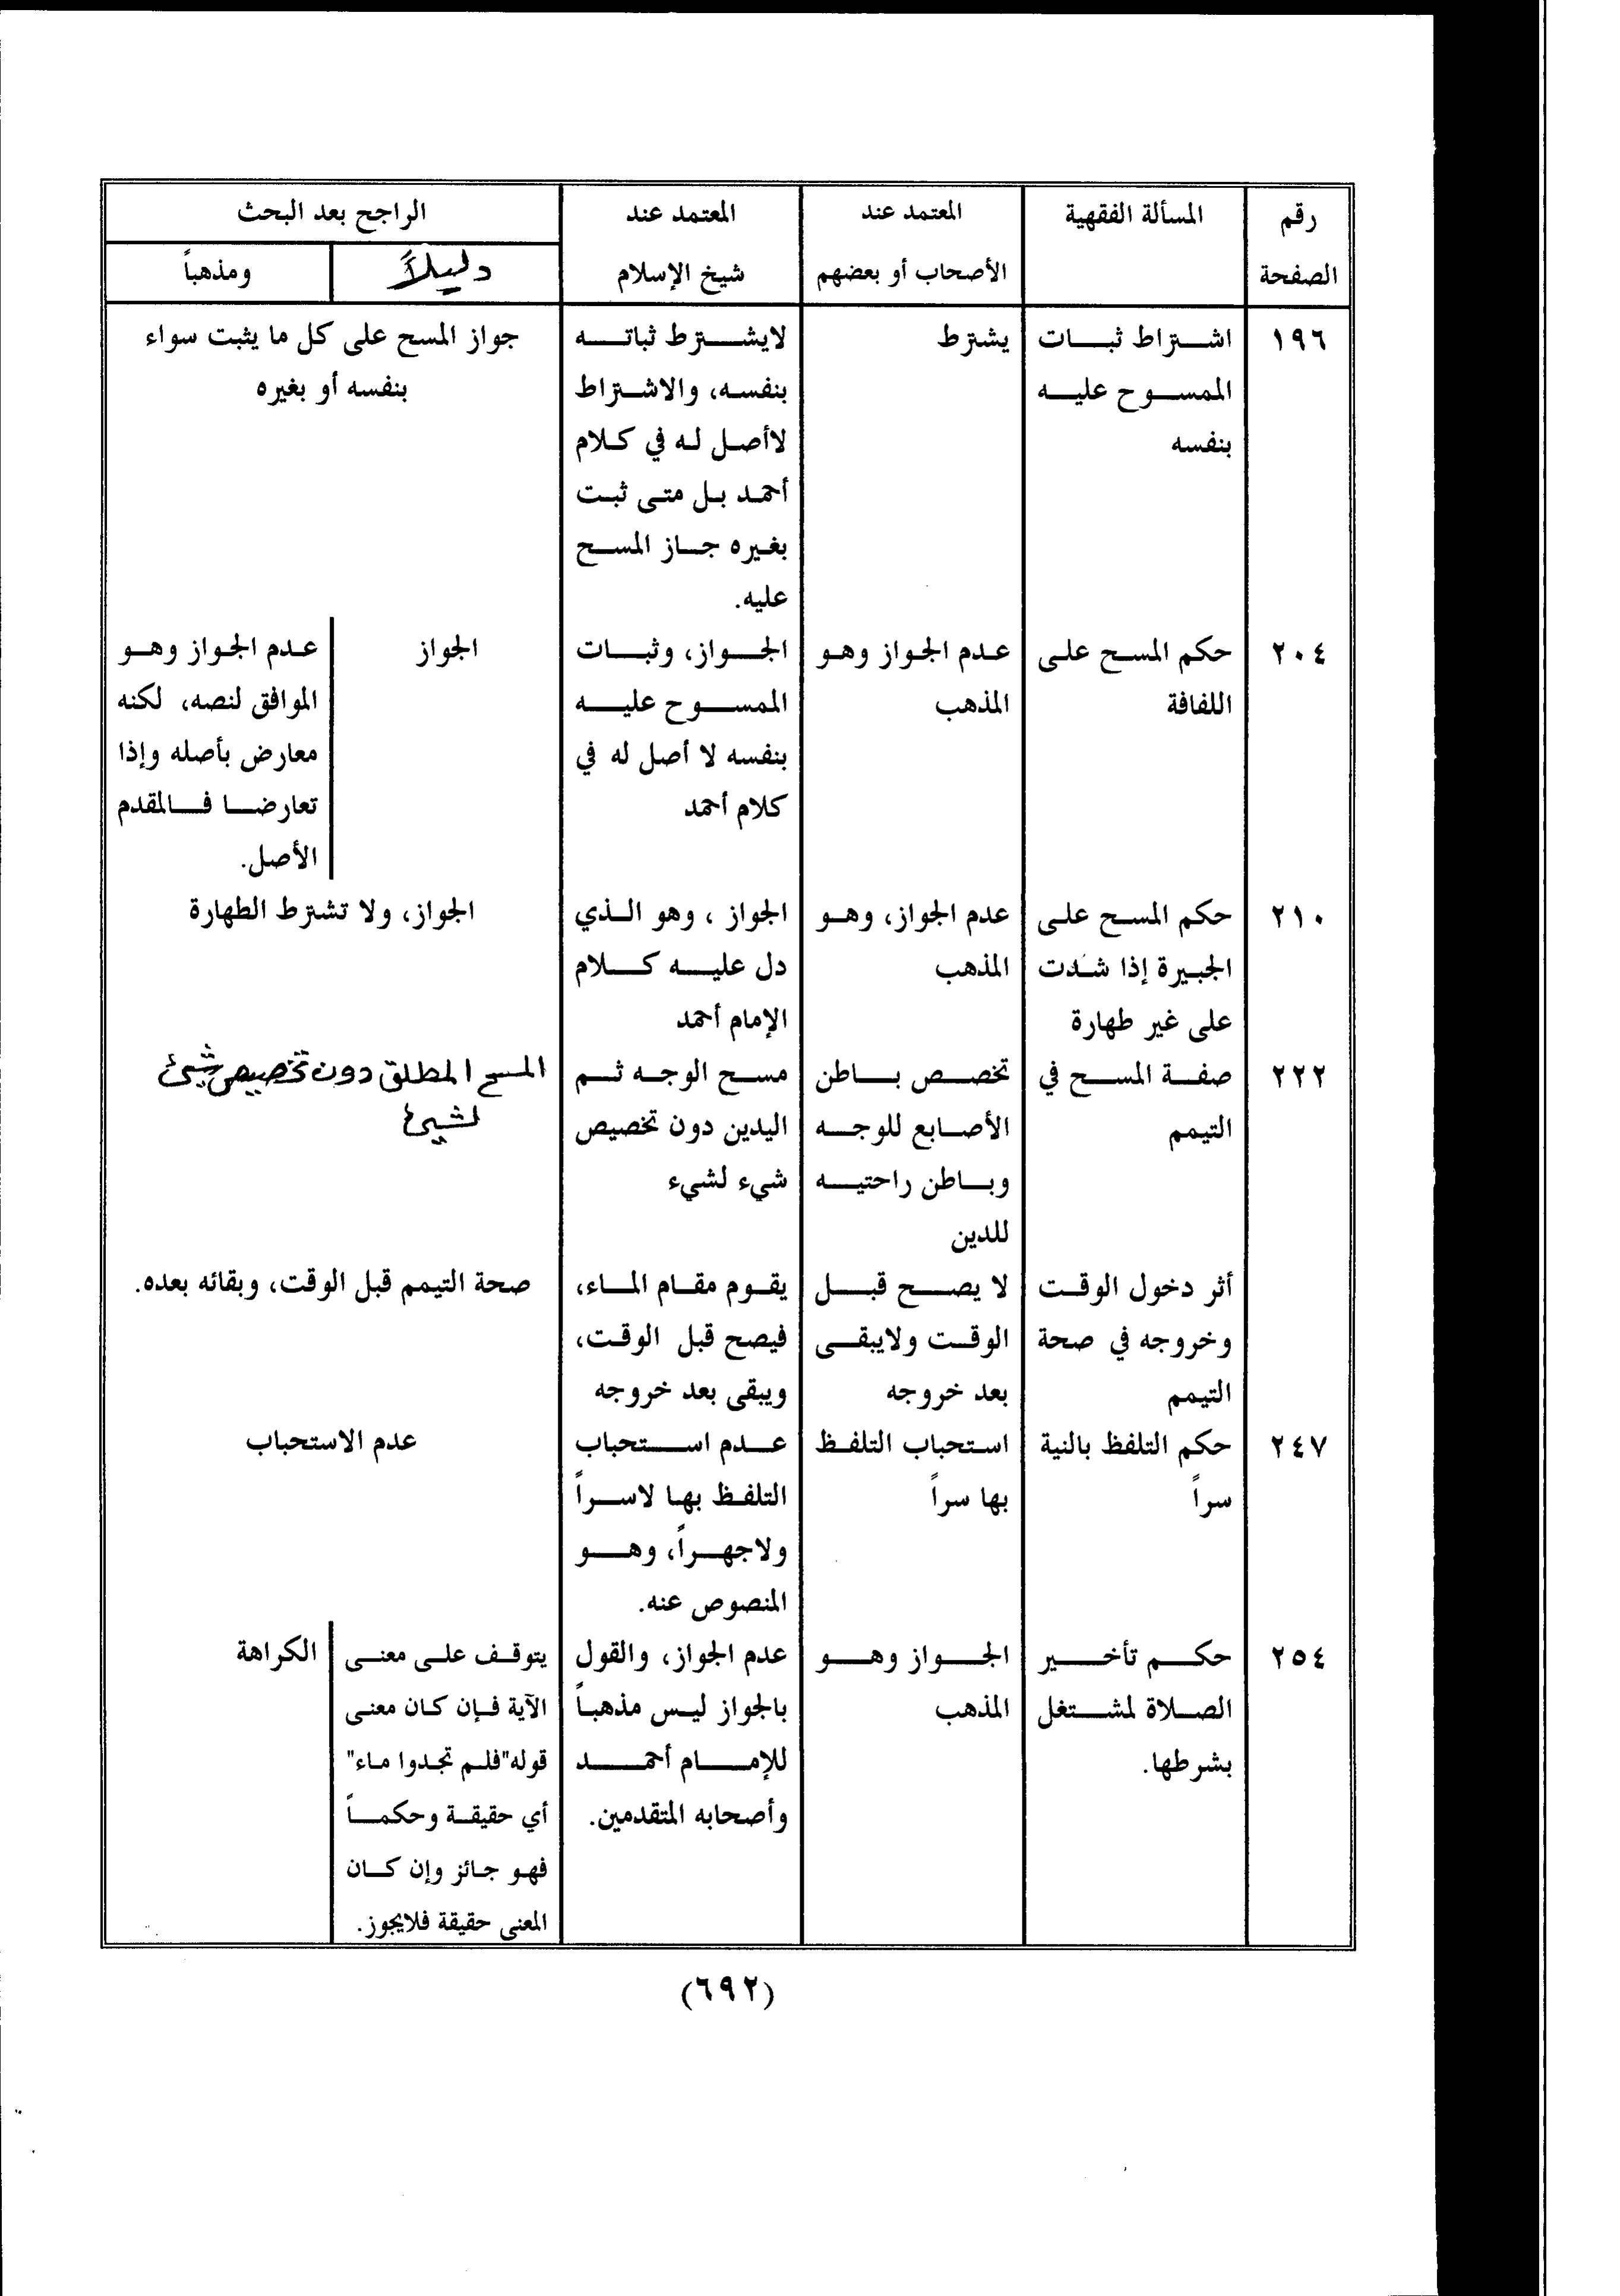 رقم
الصفحة
المسألة الفقهية
المعتمد عند
الأصحاب أو بعضهم
المعتمد عند
شيخ الإسلام
الراجح بعد البحث
دليلاً
ومذهباً
١٩٦
اشتراط ثبات
الممسوح عليه
بنفسه
يشترط
لايشترط ثباته
بنفسه، والاشتراط
لاأصل له في كلام
أحمد بل متى ثبت
بغيره جاز المسح
عليه.
جواز المسح على كل ما يثبت سواء
بنفسه أو بغيره
٢٠٤
حكم المسح على
اللفافة
عدم الجواز وهو
المذهب
الجواز، وثبات
الممسوح عليه
بنفسه لا أصل له في
كلام أحمد
الجواز
عدم الجواز وهو
الموافق لنصه، لكنه
معارض بأصله وإذا
تعارضا فالمقدم
الأصل.
٢١٠
حكم المسح على
الجبيرة إذا شدت
على غير طهارة
عدم الجواز، وهو
المذهب
الجواز ، وهو الذي
دل عليه كلام
الإمام أحمد
الجواز، ولا تشترط الطهارة
٢٢٢
صفة المسح في
التيمم
تخصص باطن
الأصابع للوجه
وباطن راحتيه
للدين
مسح الوجه ثم
اليدين دون تخصيص
شيء لشيء
المسح المطلق دون تخصيص شيئ
لشيئ
أثر دخول الوقت
وخروجه في صحة
التيمم
لا يصح قبل
الوقت ولايبقى
بعد خروجه
يقوم مقام الماء،
فيصح قبل الوقت،
ويبقى بعد خروجه
صحة التيمم قبل الوقت، وبقائه بعده.
٢٤٧
حكم التلفظ بالنية
سراً
استحباب التلفظ
بها سراً
عدم استحباب
التلفظ بها لاسراً
ولاجهراً، وهو
المنصوص عنه.
عدم الاستحباب
٢٥٤
حكم تأخير
الصلاة لمشتغل
بشرطها.
الجواز وهو
المذهب
عدم الجواز، والقول
بالجواز ليس مذهباً
للإمام أحمد
وأصحابه المتقدمين.
يتوقف على معنى
الآية فإن كان معنى
قوله"فلم تجدوا ماء"
أي حقيقة وحكماً
فهو جائز وإن كان
المعنى حقيقة فلايجوز.
الكراهة
(٦٩٢)